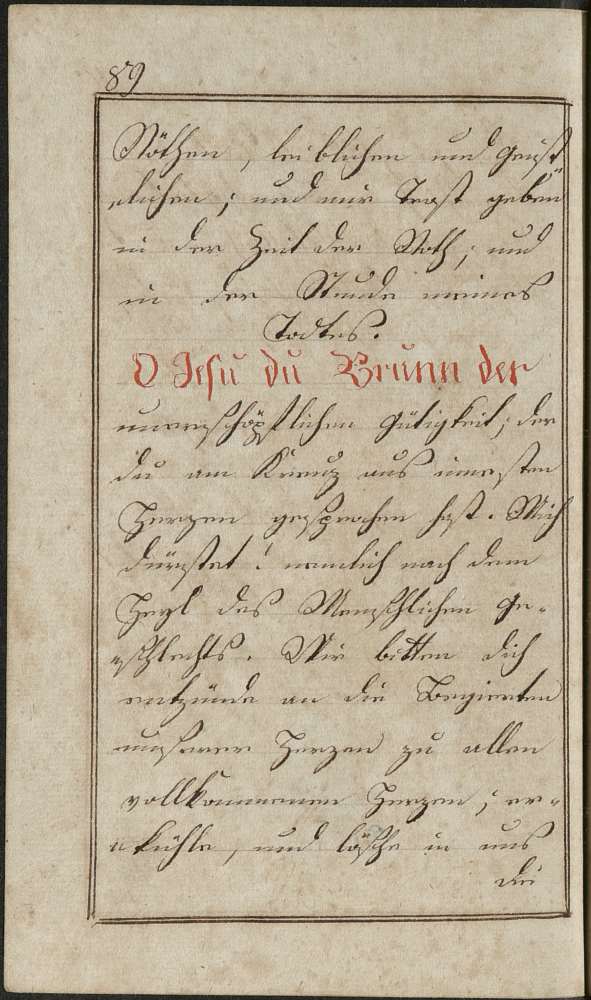 89
Nöthen, leiblichen und Geist
„lichen; und mir Trost geben
in der Zeit der Noth; und
in der Stunde meines
Todtes.
O Jesu du Brunn der
unerschöpflichen Gütigkeit; der
du am Kreuz aus innersten
Herzen gesprochen hast. Mich
dürstet! nemlich nach dem
Heyl des Menschlichen Ge-
„schlechts. Wir bitten dich
entzünde an die Begierten
unserer Herzen zu allen
vollkommenen Herzen; er-
„kühle, und lösche in uns
die